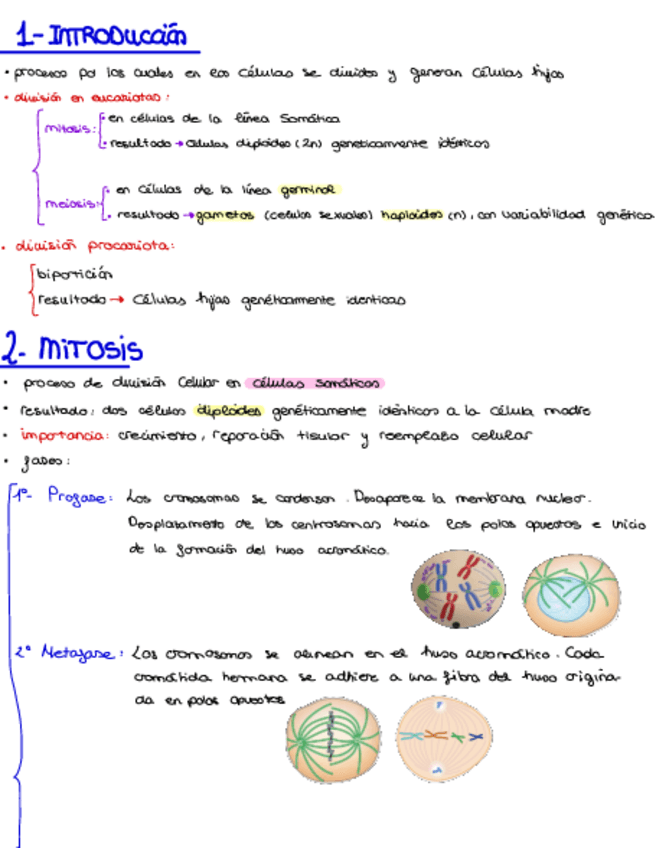 1- INTRODUCCIÓN
• procesos por los cuales en las células se dividen y generan células hijas
• división en eucariotas:
mitosis: • en células de la línea somática
• resultado → células diploides (2n) genéticamente idénticos
meiosis: • en células de la línea germinal
• resultado → gametos (células sexuales) haploides (n), con variabilidad genética
• división procariota:
bipartición
resultado → células hijas genéticamente identicas
2- MITOSIS
• proceso de división celular en células somáticas
• resultado: dos células diploides genéticamente idénticos a la célula madre
• importancia: crecimiento, reparación tisular y reemplazo celular
• fases:
1º- Profase: Los cromosomas se condensan. Desaparece la membrana nuclear.
Desplazamiento de los centrosomas hacia los polos opuestos e inicio
de la formación del huso acromático.
2º Metafase: Los cromosomas se alinean en el huso acromático. Cada
cromátida hermana se adhiere a una fibra del huso origina-
da en polos opuestos